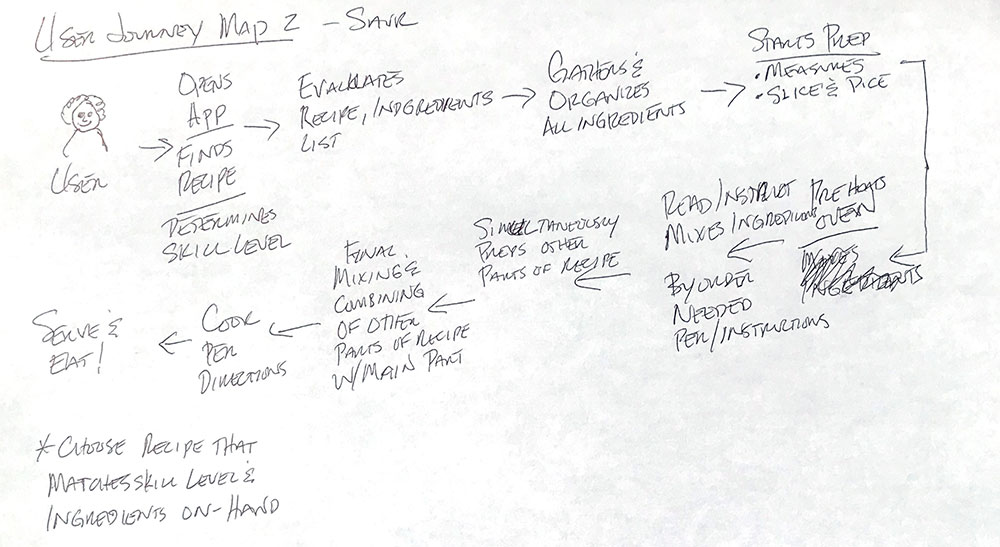 USER JOURNEY MAP 2 – SAVR
USER
OPENS
APP
FINDS
RECIPE
DETERMINES
SKILL LEVEL
EVALUATES
RECIPE, INDGREDIENTS
LIST
GATHERS &
ORGANIZES
ALL INGREDIENTS
STARTS PREP
• MEASURES
• SLICE & DICE
PRE HEATS
OVEN
READ/INSTRUCT
MIXES/INGREDIENTS
BY ORDER
NEEDED
PER/INSTRUCTIONS
SIMULTANEOUSLY
PREPS OTHER
PARTS OF RECIPE
FINAL
MIXING &
COMBINING
OF OTHER
PARTS OF RECIPE
W/MAIN PART
COOK
PER
DIRECTIONS
SERVE &
EAT!
* CHOOSE RECIPE THAT
MATCHES SKILL LEVEL &
INGREDIENTS ON-HAND